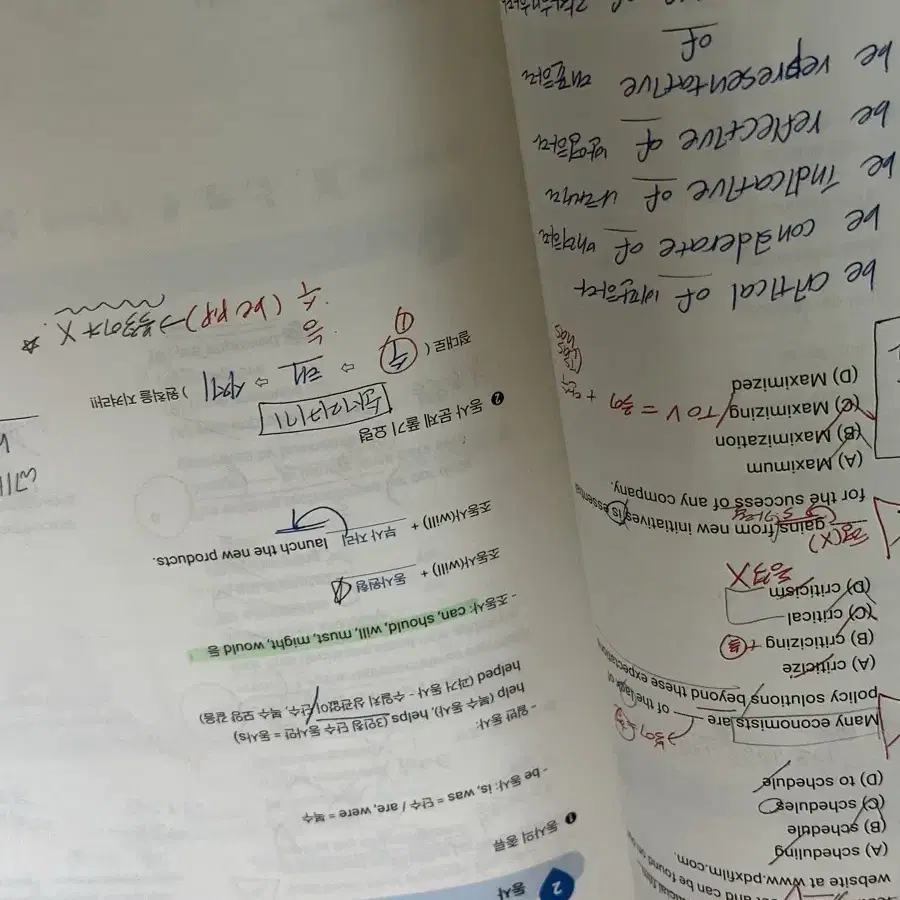 website at www.pdxfilm.com.
(A) scheduling
(B) schedule
(C) schedules
(D) to schedule
Many economists are ___ of the lack of
policy solutions beyond these expectations
(A) criticize
(B) criticizing
(C) critical
(D) criticism
gains from new initiatives is essential
for the success of any company.
(A) Maximum
(B) Maximization
(C) Maximizing
(D) Maximized
= TO V
be critical of 비판하다
be considerate of 배려하다
be indicative of 나타내다
be reflective of 반영하다
be representative 대표하다
of
2 동사
❶ 동사의 종류
- be 동사: is, was = 단수 / are, were = 복수
- 일반 동사:
help (복수 동사), helps (3인칭 단수 동사만 = 동사s)
helped (과거 동사 - 수일치 상관없이 단수, 복수 모양 같음)
- 조동사: can, should, will, must, might, would 등
조동사(will) + 동사원형
조동사(will) + 부사 자리 launch the new products.
❷ 동사 문제 풀기 요령
절대로 ( 수 ⇨ 태 ⇨ 시제 ) 원칙을 지켜라!!
능
수 (be pp) → 목적어 X